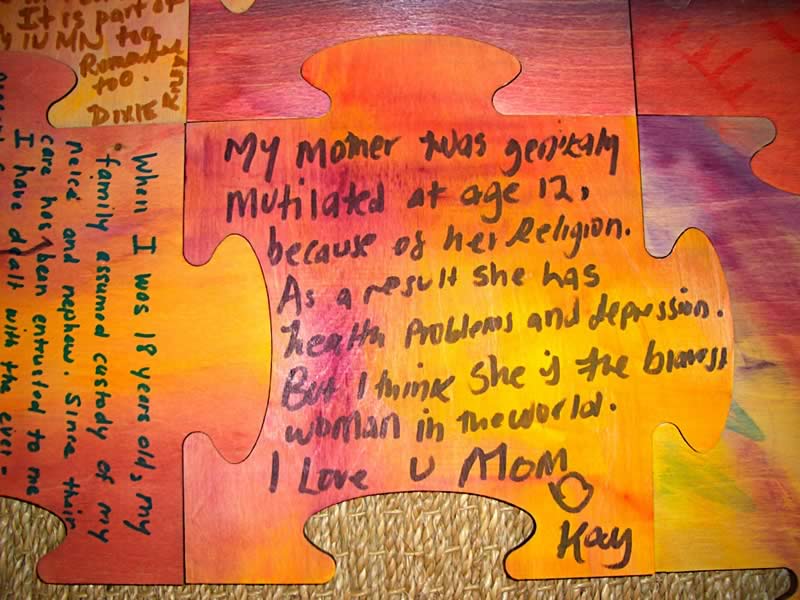 It is part of
IV MN too
Romantic
too.
DIXIE
When I was 18 years old, my
family assumed custody of my
neice and nephew. Since their
care has been entrusted to me
I have dealt with the ever-
My Mother was genitaly
Mutilated at age 12,
because of her Religion.
As a result she has
health Problems and depression.
But I think she is the bravest
woman in the world.
I Love U MOM
Kay